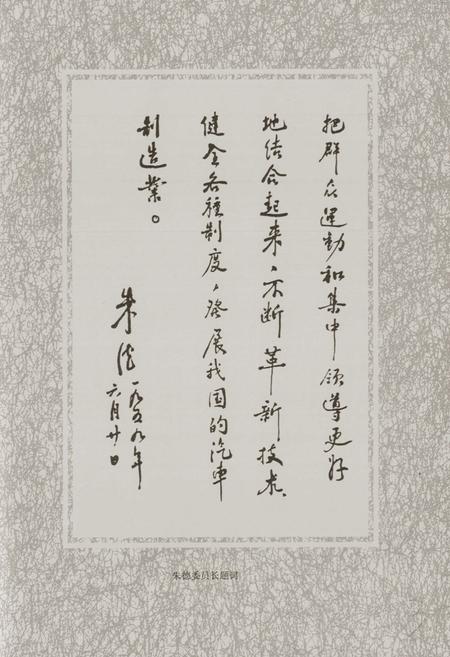 把群众运动和集中领导更好
地结合起来、不断革新技术、
健全各種制度、發展我国的汽車
制造業。
朱德
一九五九年
六月廿日
朱德委员长题词